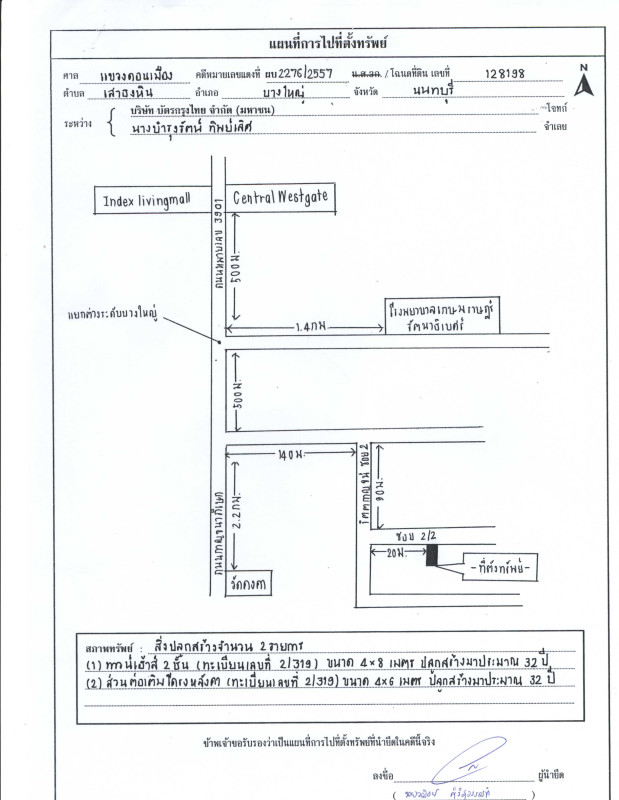 แผนที่การไปที่ตั้งทรัพย์
ศาล แขวงดอนเมือง คดีหมายเลขแดงที่ ผบ2276/2557 น.ส.3ก. / โฉนดที่ดิน เลขที่ 128198
N
ตำบล เสาธงหิน อำเภอ บางใหญ่ จังหวัด นนทบุรี
ระหว่าง { บริษัท บัตรกรุงไทย จำกัด (มหาชน) โจทก์
นางบำรุงรัตน์ ทิพย์เลิศ จำเลย
Index livingmall
Central Westgate
ถนนหมายเลข 3901
500 ม.
แยกต่างระดับบางใหญ่
1.4 กม
โรงพยาบาลเกษมราษฎร์
รัตนาธิเบศร์
500 ม.
140 ม.
ถนนกาญจนาภิเษก
2.2 กม.
ซอย 2
90 ม.
ซอย 2/2
20 ม.
-ที่ตั้งทรัพย์-
วัดคงคา
สภาพทรัพย์ : สิ่งปลูกสร้างจำนวน 2 รายการ
(1) ทาวน์เฮ้าส์ 2 ชั้น (ทะเบียนเลขที่ 2/319) ขนาด 4×8 เมตร ปลูกสร้างมาประมาณ 32 ปี
(2) ส่วนต่อเติมโครงหลังคา (ทะเบียนเลขที่ 2/319) ขนาด 4×6 เมตร ปลูกสร้างมาประมาณ 32 ปี
ข้าพเจ้าขอรับรองว่าเป็นแผนที่การไปที่ตั้งทรัพย์ที่นำยึดในคดีนี้จริง
ลงชื่อ ผู้นำยึด
( )